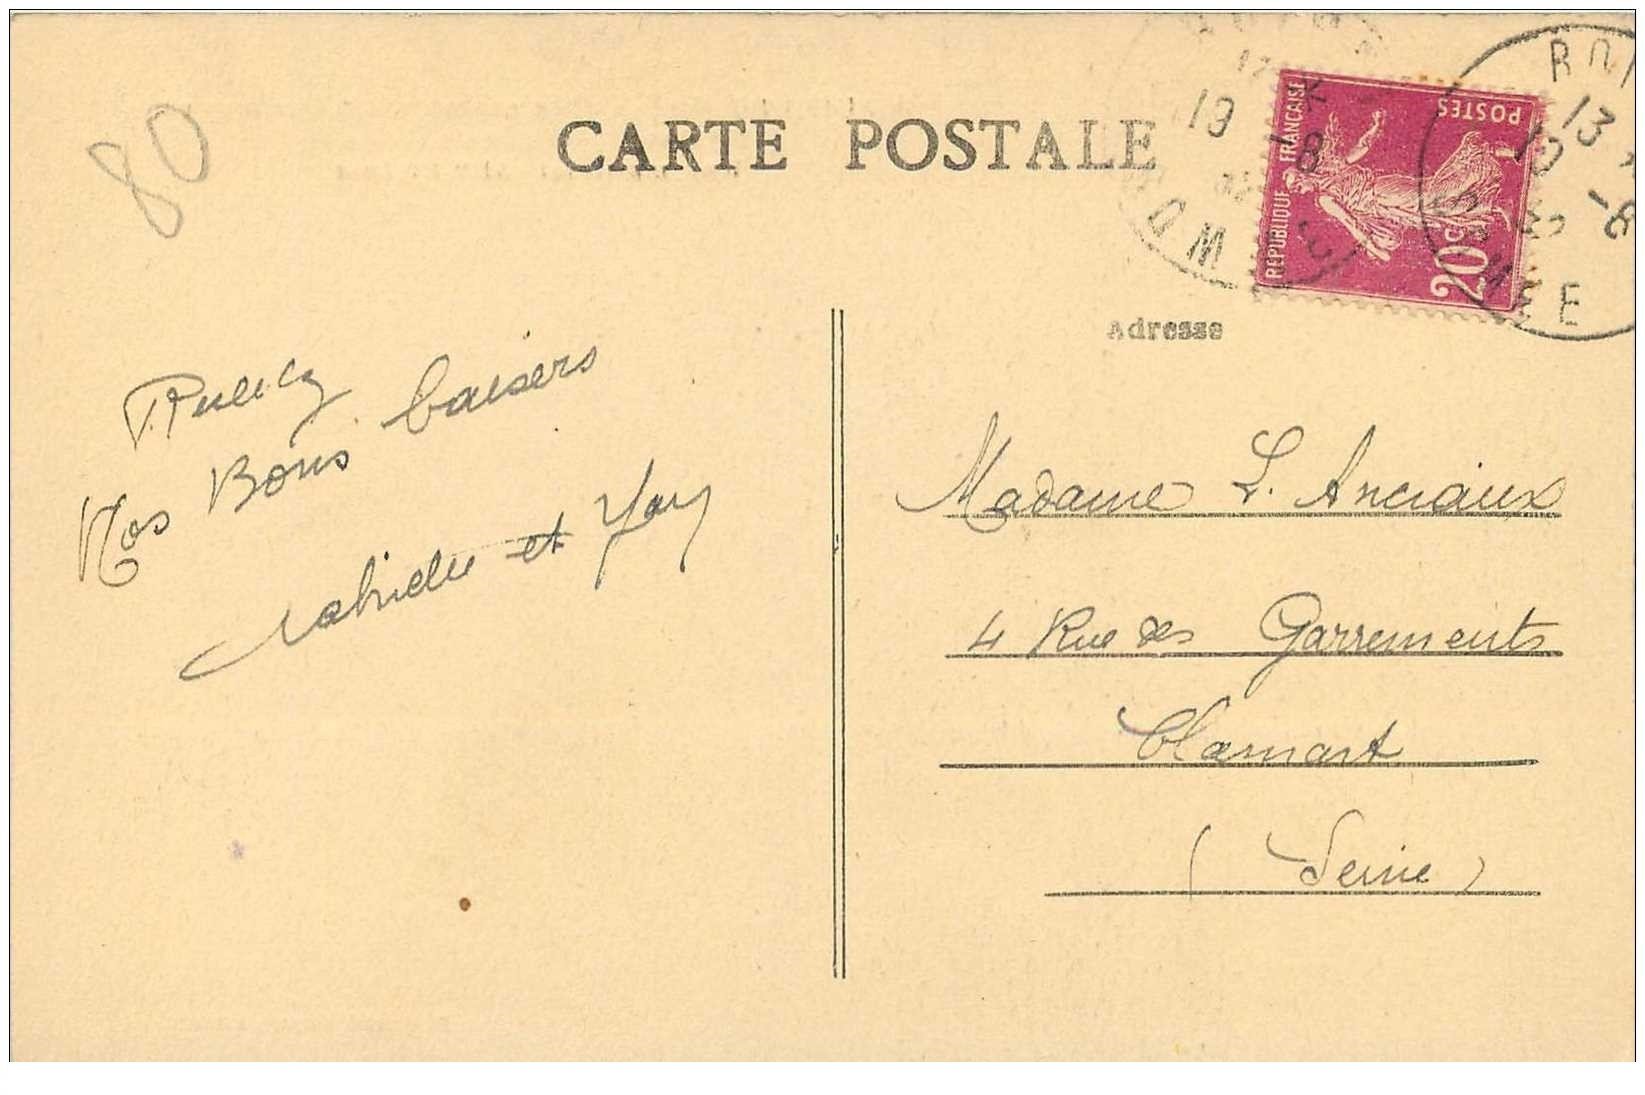 80
CARTE POSTALE
REPUBLIQUE FRANÇAISE
POSTES
20c
19 -8
SOMME
13
-8
Adresse
Nos Bons baisers
et
Madame L. Anciaux
4 Rue des Garrements
Clamart
(Seine)